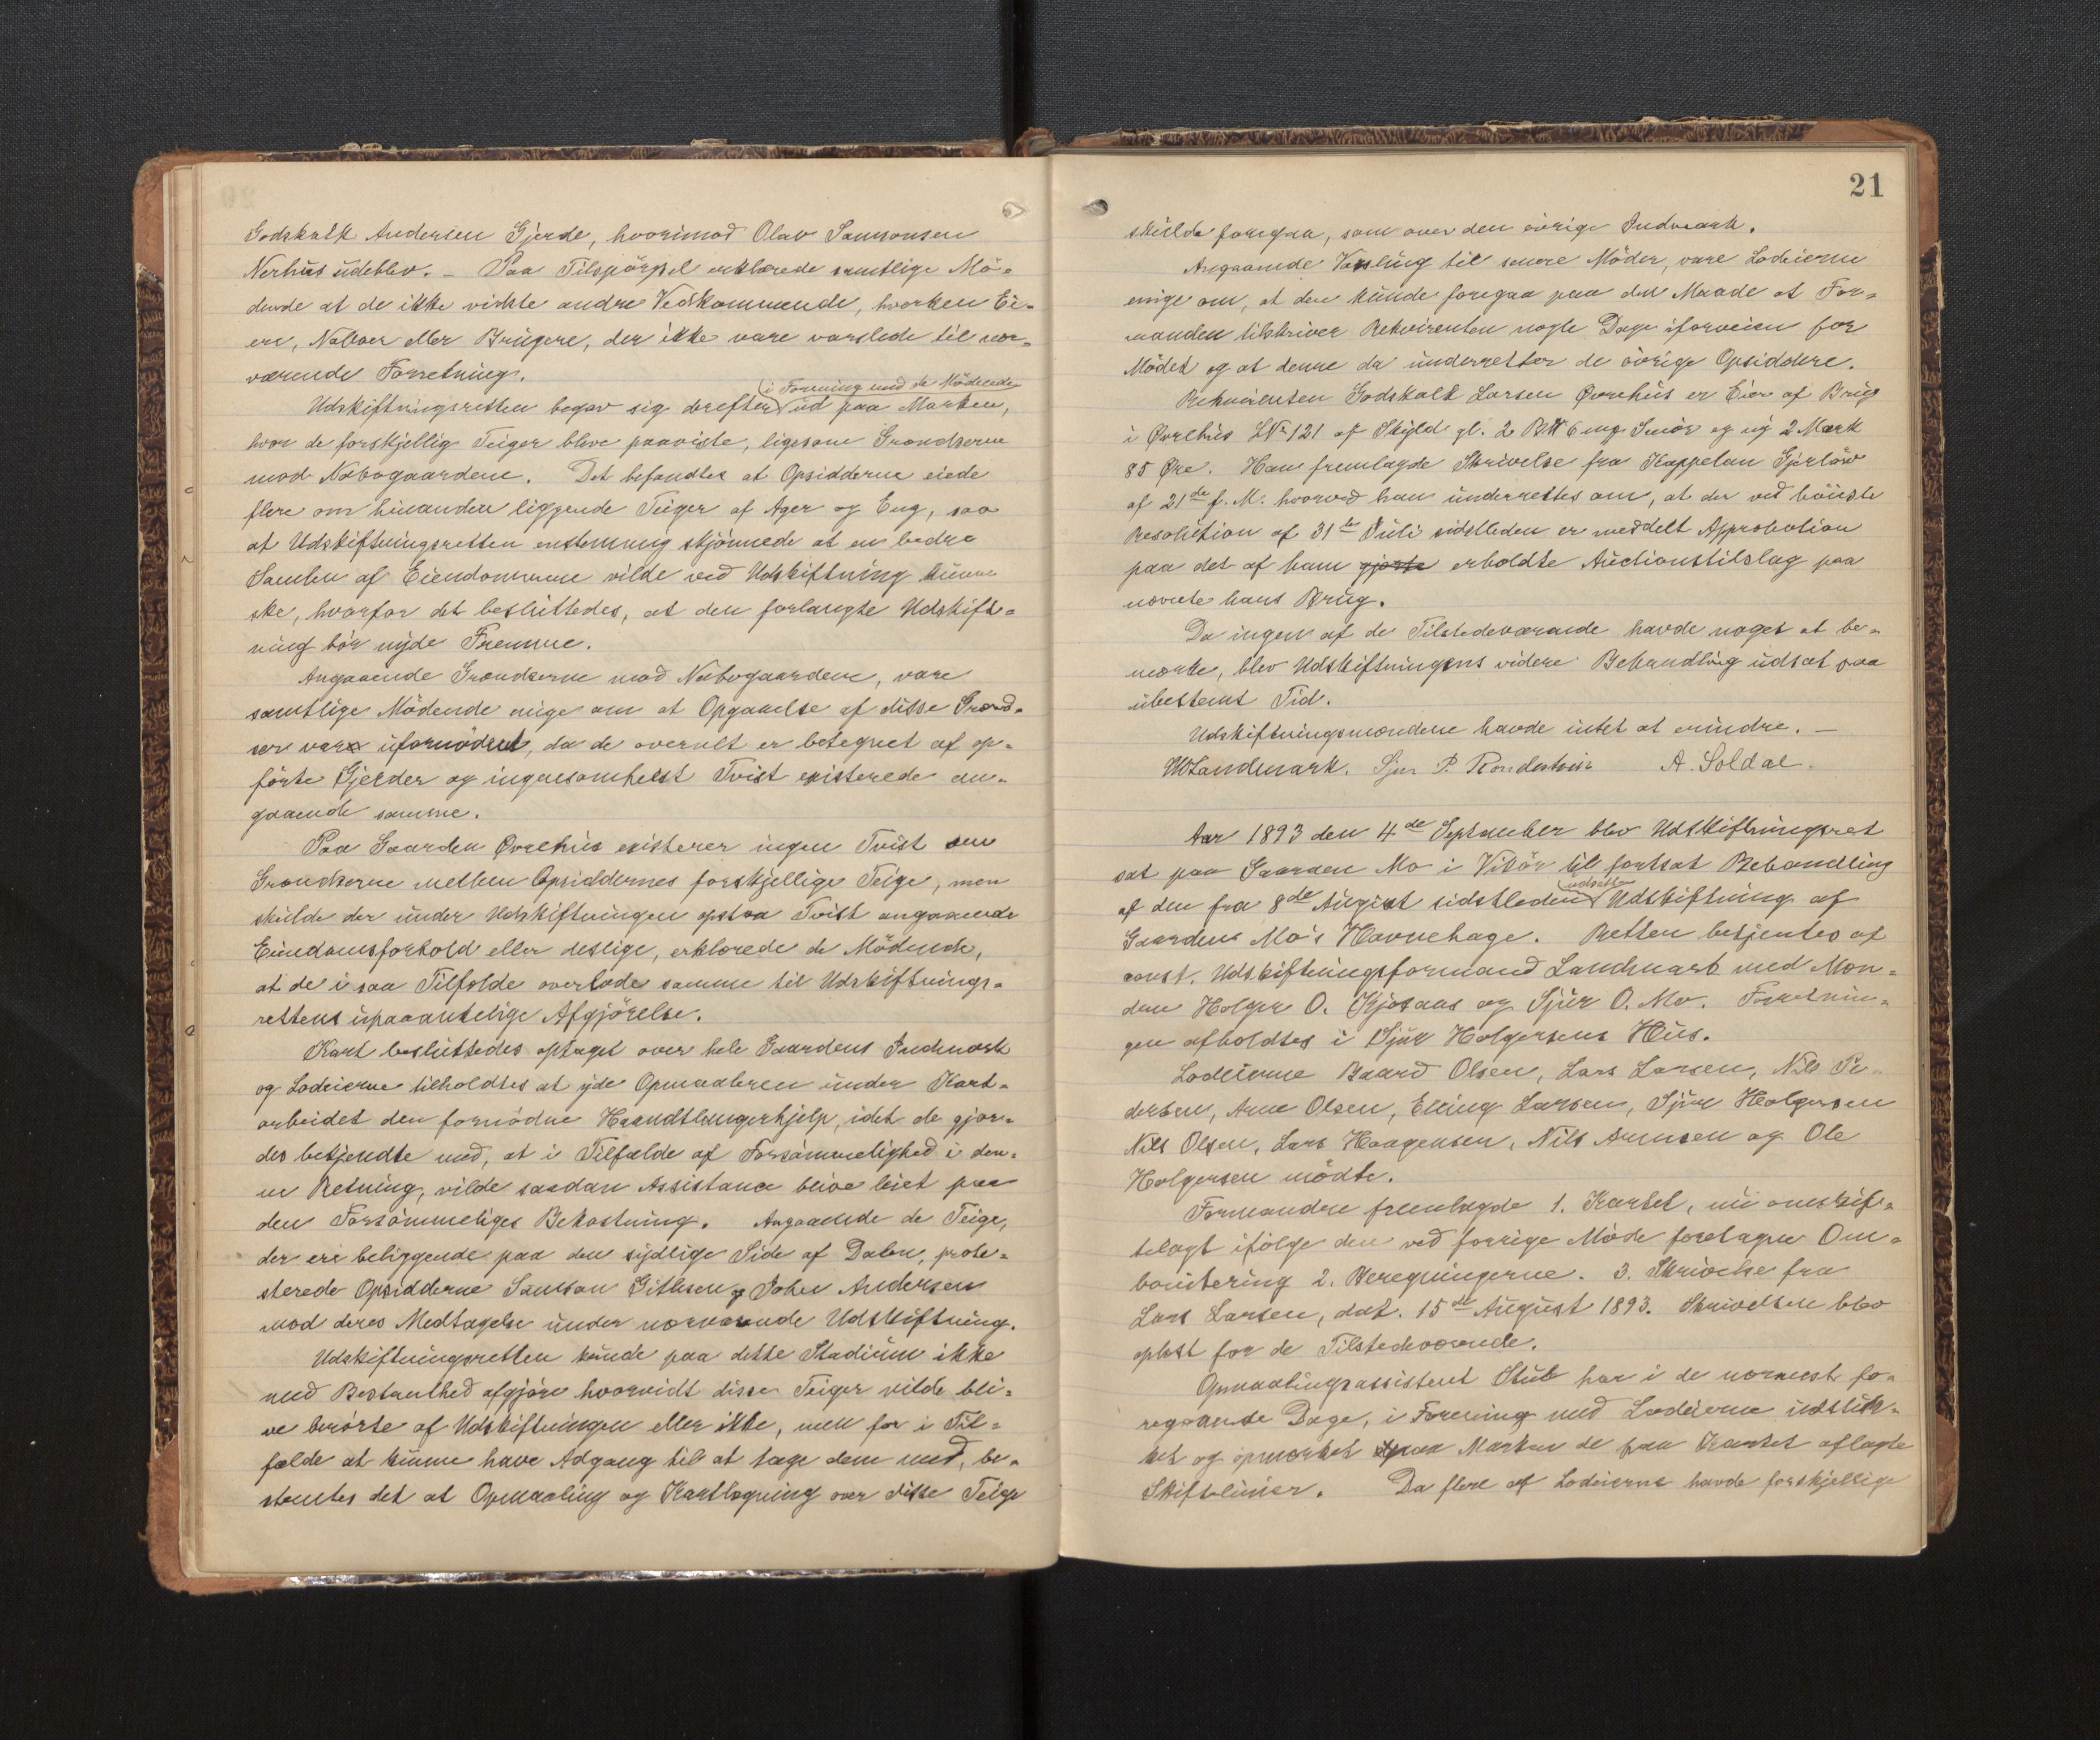 Godskalk Andersen Gjerde, hvorimod Olav Samsonsen
Nerhus udeblev. – Paa Tilspørgsel erklærede samtlige Mö-
dende at de ikke vidste andre Vedkommende, hvorken Ei-
ere, Naboer eller Brugere, der ikke vare varslede til nær-
værende Forretning.
i Forening med de Mödende
Udskiftningsretten begav sig derefter ud paa Marken,
hvor de forskjellig Teiger bleve paaviste, ligesom Grændserne
mod Nabogaardene. Det befandtes at Opsidderne eiede
flere om hinanden liggende Teiger af Ager og Eng, saa
at Udskiftningsretten enstemmig skjönnede at en bedre
Samlen af Eiendommene vilde ved Udskiftning kunne
ske, hvorfor det besluttedes, at den forlangte Udskift-
ning bör nyde Fremme.
Angaaende Grændserne mod Nabogaardene, vare
samtlige Mödende enige om at Opgaaelse af disse Grænd-
ser var ufornödent, da de overalt er betegnet af op-
förte Gjerder og ingensomhelst Tvist existerede an-
gaaende samme.
Paa Gaarden Øvrehus existerer ingen Tvist om
Grændserne mellem Opsiddernes forskjellige Teige, men
skulde der under Udskiftningen opstaa Tvist angaaende
Eiendomsforhold eller deslige, erklærede de Mödende,
at de i saa Tilfælde overlode samme til Udskiftnings-
rettens upaaankelige Afgjörelse.
Kart besluttedes optaget over hele Gaardens Indmark
og Lodeierne tilholdtes at yde Opmaaleren under Kart-
arbeidet den fornödne Haandtlangerhjelp, idet de gjor-
des bekjendte med, at i Tilfælde af Forsömmelighed i den-
ne Retning, vilde saadan Assistance blive leiet paa
den Forsömmeliges Bekostning. Angaaende de Teige,
der ere beliggende paa den sydlige Side af Dalen, prote-
sterede Opsidderne Samson Githsen og John Andersen
mod deres Medtagelse under nærværende Udskiftning.
Udskiftningsretten kunde paa dette Stadium ikke
med Bestemthed afgjöre hvorvidt disse Teiger vilde bli-
ve berörte af Udskiftningen eller ikke, men for i Til-
fælde at kunne have Adgang til at tage dem med, be-
stemtes det at Opmaaling og Kartlægning over disse Teige
21
skulde foregaa, som over den övrige Indmark.
Angaaende Varsling til senere Möder, vare Lodeierne
enige om, at den kunde foregaa paa den Maade at For-
manden tilskriver Rekvirenten nogle Dage iforveien for
Mödet og at denne da underretter de övrige Opsiddere.
Rekvirenten Godskalk Larsen Øvrehus er Eier af Brug
i Øvrehus LNo 121 af Skyld gl. 2 Bpd 6 mrg Smör og ny 2 Mark
85 Øre. Han fremlagde Skrivelse fra Kappelan Gjerlöw
af 21de f. M. hvorved han underrettes om, at der ved höieste
Resolution af 31te Juli sidstleden er meddelt Approbation
paa det af ham gjorte erholdte Auctionstilslag paa
nævnte hans Brug.
Da ingen af de Tilstedeværende havde noget at be-
mærke, blev Udskiftningens videre Behandling udsat paa
ubestemt Tid.
Udskiftningsmændene havde intet at erindre. –
Landmark. Sjur P. A. Soldal.
Aar 1893 den 4de September blev Udskiftningsret
sat paa Gaarden Mo i Vikör til fortsat Behandling
udsatte
af den fra 8de August sidstleden Udskiftning af
Gaarden Mo's Havnehage. Retten betjentes af
const. Udskiftningsformand Landmark med Mæn-
dene Holger O. Kjosaas og Sjur O. Mo. Forretnin-
gen afholdtes i Sjur Holgersens Hus.
Lodeierne Baard Olsen, Lars Larsen, Nils Pe-
dersen, Arne Olsen, Elling Larsen, Sjur Holgersen
Nils Olsen, Lars Haagensen, Nils Arnesen og Ole
Holgersen mödte.
Formanden fremlagde 1. Kartet, nu omskif-
telagt ifölge den ved forrige Möde foretagne Om-
bonitering 2. Beregningerne. 3. Skrivelse fra
Lars Larsen, dat. 15de August 1893. Skrivelsen blev
oplæst for de Tilstedeværende.
Opmaalingsassistent Stub har i de nærmest fo-
regaaende Dage, i Forening med Lodeierne udstik-
ket og opmærket paa Marken de paa Kartet aflagte
Skiftelinier. Da flere af Lodeierne havde forskjellige